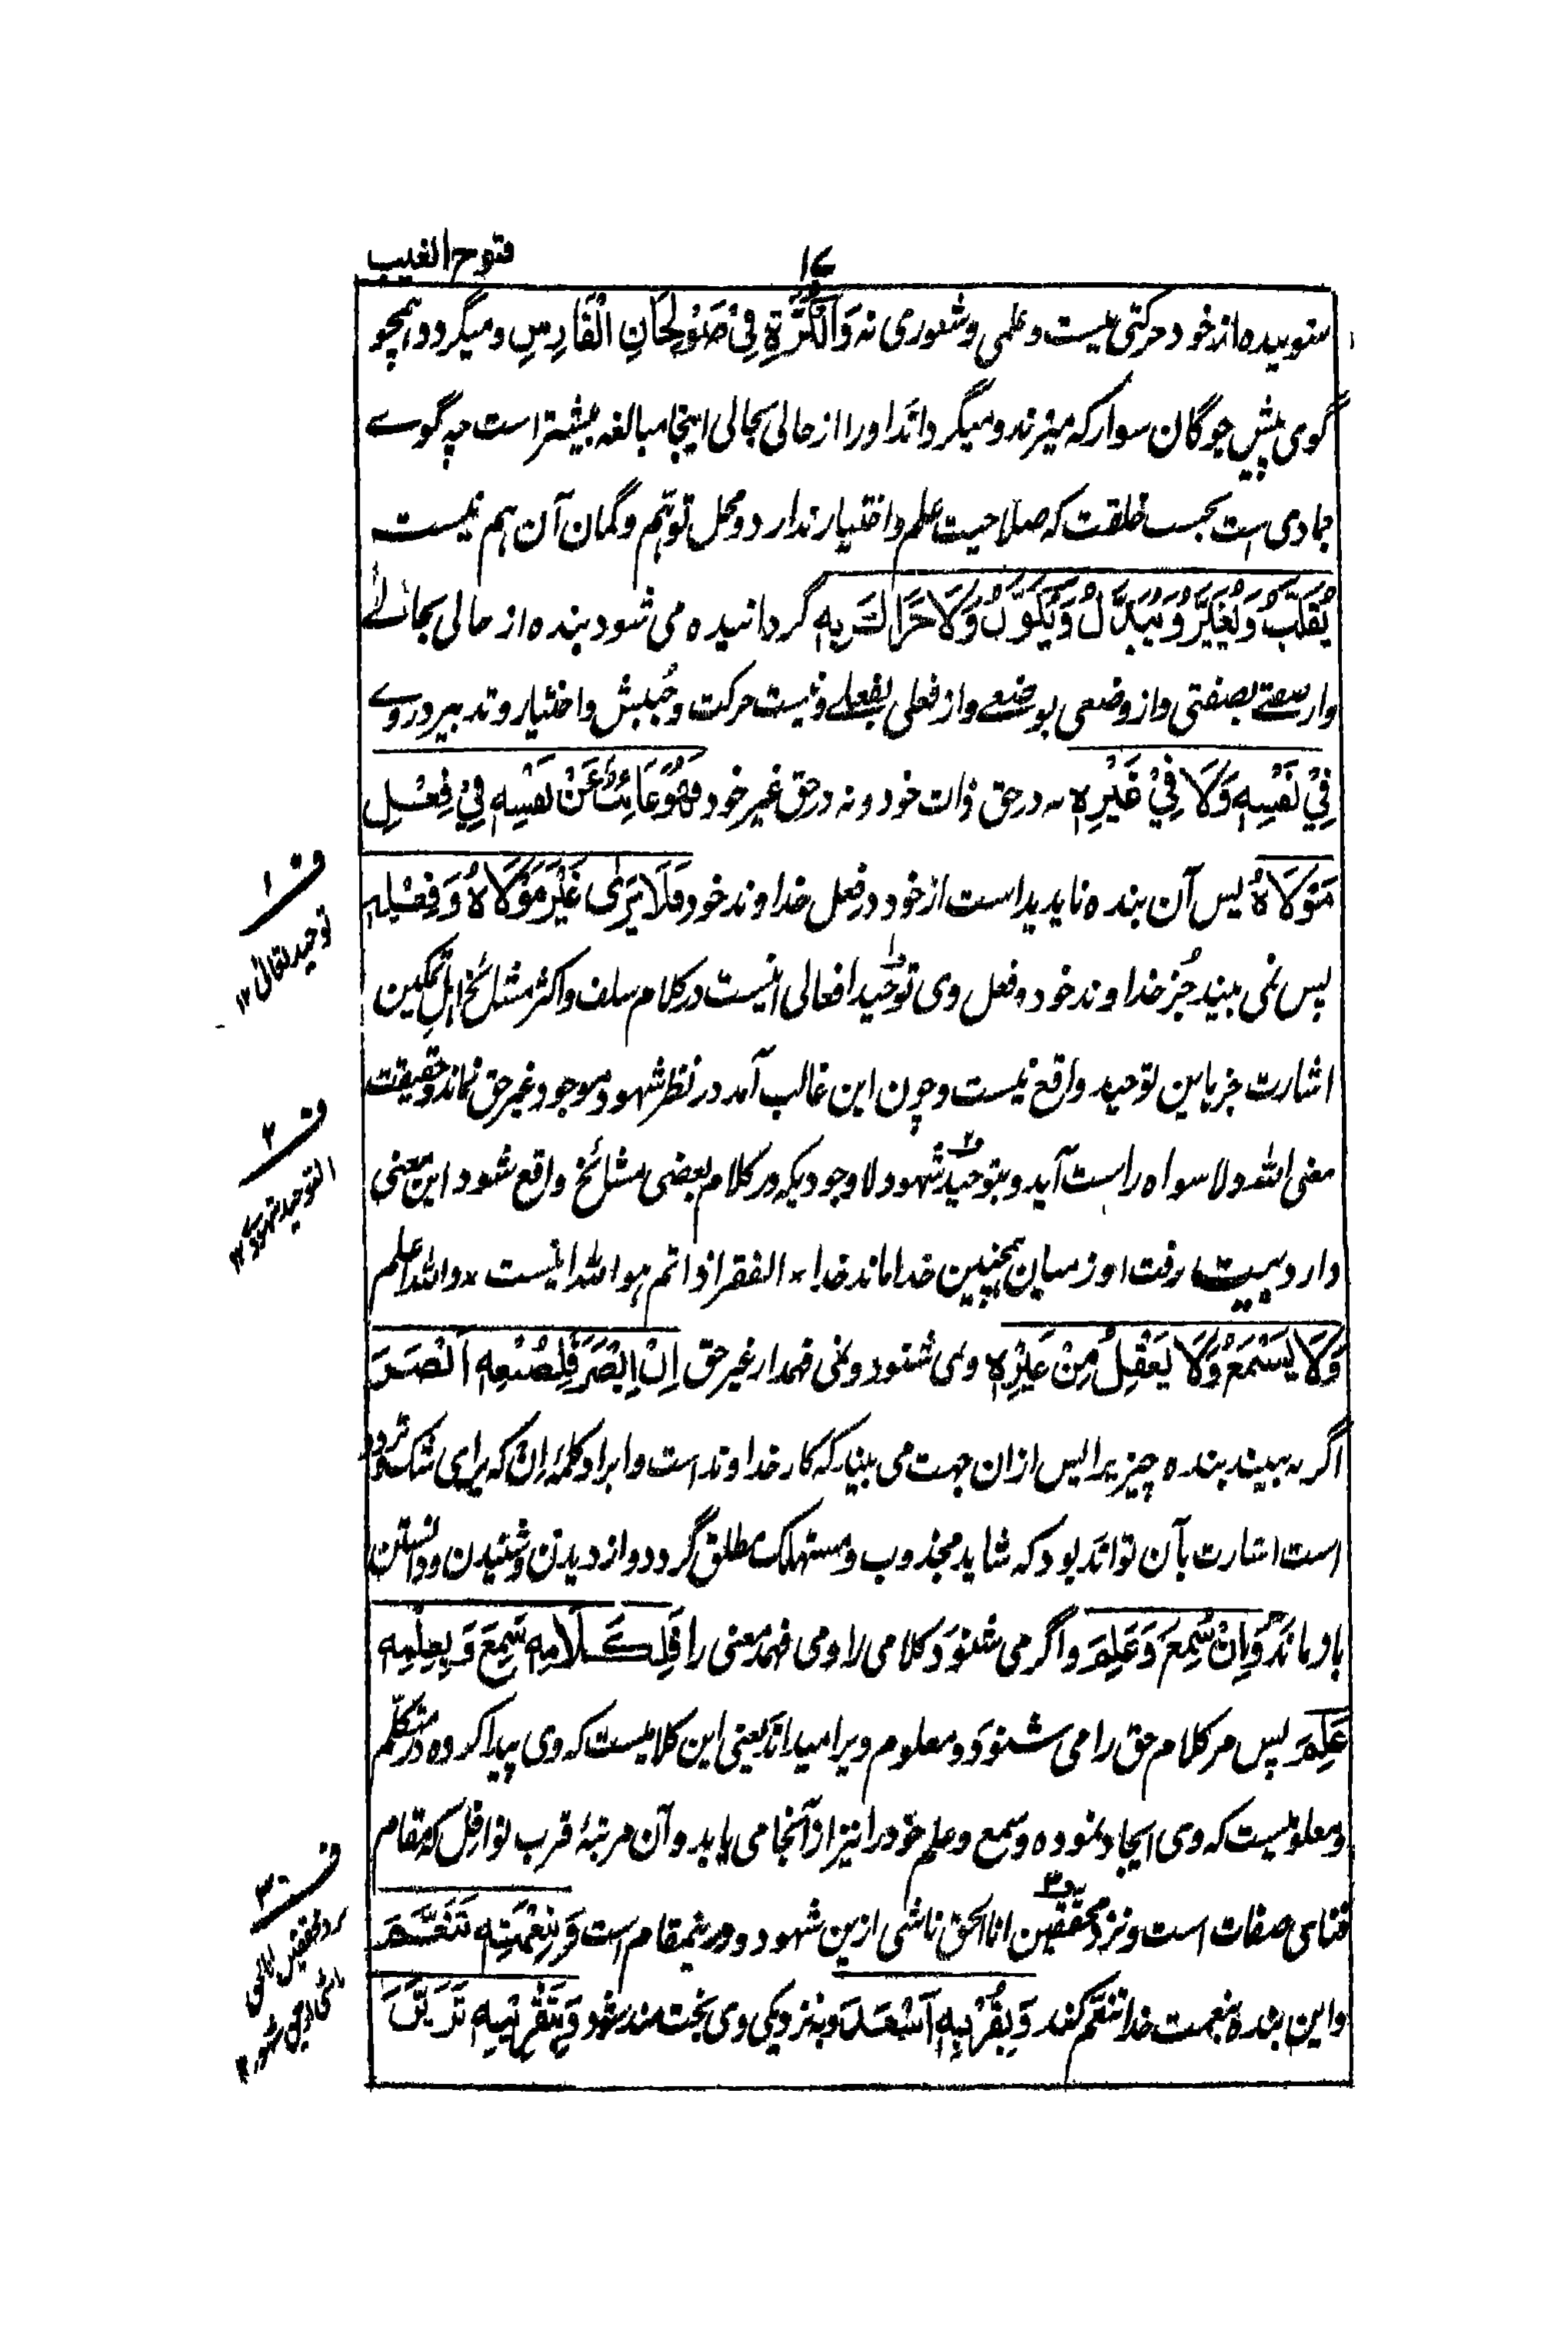 فتوح الغیب
۱۷
او را از خود حرکتی نیست و علمی و شعوری نه وَالْكُرَةِ فِيْ صَوْلَجَانِ الْفَارِسِ و میگردد همچو
گوی پیش چوگان سوار که میزند و میگرداند او را از حالی بحالی اینجا مبالغه بیشتر است چه گوے
جمادی است بحسب خلقت که صلاحیت علم و اختیار ندارد و محل توهّم و گمان آن هم نیست
يُقَلَّبُ وَيُغَيَّرُ وَيُبَدَّلُ وَيُكَوَّنُ وَلَا حَرَاكَ بِهٖ گردانیده می شود بنده از حالی بحالے
و از صفتے بصفتی و از وضعی بوضعے و از فعلی بفعلے و نیست حرکت و جُنبش و اختیار و تدبیر در وے
فِيْ نَفْسِهٖ وَلَا فِيْ غَيْرِهٖ نه در حق ذات خود و نه در حق غیر خود فَهُوَ غَائِبٌ عَنْ نَفْسِهٖ فِيْ فِعْلِ
مَوْلَاهُ پس آن بنده ناپدید است از خود در فعل خداوند خود فَلَا يَرٰى غَيْرَ مَوْلَاهُ وَفِعْلِهٖ
پس نمی بیند جُز خداوند خود و فعل وی توحید افعالی اینست در کلام سلف و اکثر مشائخ اهل تمکین
اشارت جز باین توحید واقع نیست و چون این غالب آمد در نظر شهود موجود غیر حق نماند و حقیقت
معنی الله ولا سواه راست آید و بتوحید شهود لا وجودیکه در کلام بعضی مشائخ واقع شود این معنی
دارد بیت رفت او ز میان همچنین خدا ماند خدا × الفقر اذا تم هو الله اینست × والله اعلم
وَلَا يَسْمَعُ وَلَا يَعْقِلُ مِنْ غَيْرِهٖ و نمی شنود و نمی فهمد از غیر حق اِنْ اَبْصَرَ فَلِصُنْعِهٖ اَبْصَرَ
اگر به بیند بنده چیزیرا پس ازان جهت می بیند که کار خداوند است و ایراد کلمۀ اِن که برای شک و تردد
است اشارت بآن تواند بود که شاید مجذوب و مستهلک مطلق گردد و از دیدن و شنیدن و دانستن
باز ماند وَاِنْ سَمِعَ وَعَلِمَ و اگر می شنود کلامی را و می فهمد معنی را فَلِكَلَامِهٖ سَمِعَ وَبِعِلْمِهٖ
عَلِمَ پس مر کلام حق را می شنود و معلوم ویرا میداند یعنی این کلامیست که وی پیدا کرده در متکلّم
و معلومیست که وی ایجاد نموده و سمع و علم خود را نیز از آنجا می یابد و آن مرتبۀ قرب نوافل که مقام
فنای صفات است و نزد محققین انا الحق ناشی ازین شهود و درینمقام است وَبِنِعْمَتِهٖ تَنَعَّمَ
و این بنده بنعمت خدا تنعّم کند وَبِقُرْبِهٖ اَسْعَدَ و بنزدیکی وی بخت مند شود وَبِتَقْرِيْبِهٖ تَزَيَّنَ
ف ۱
توحید افعالی ۱۲
ف ۲
التوحید شهودی ۱۲
ف ۳
نزد محققین انا الحق
ناشی ازین شهود ۱۲